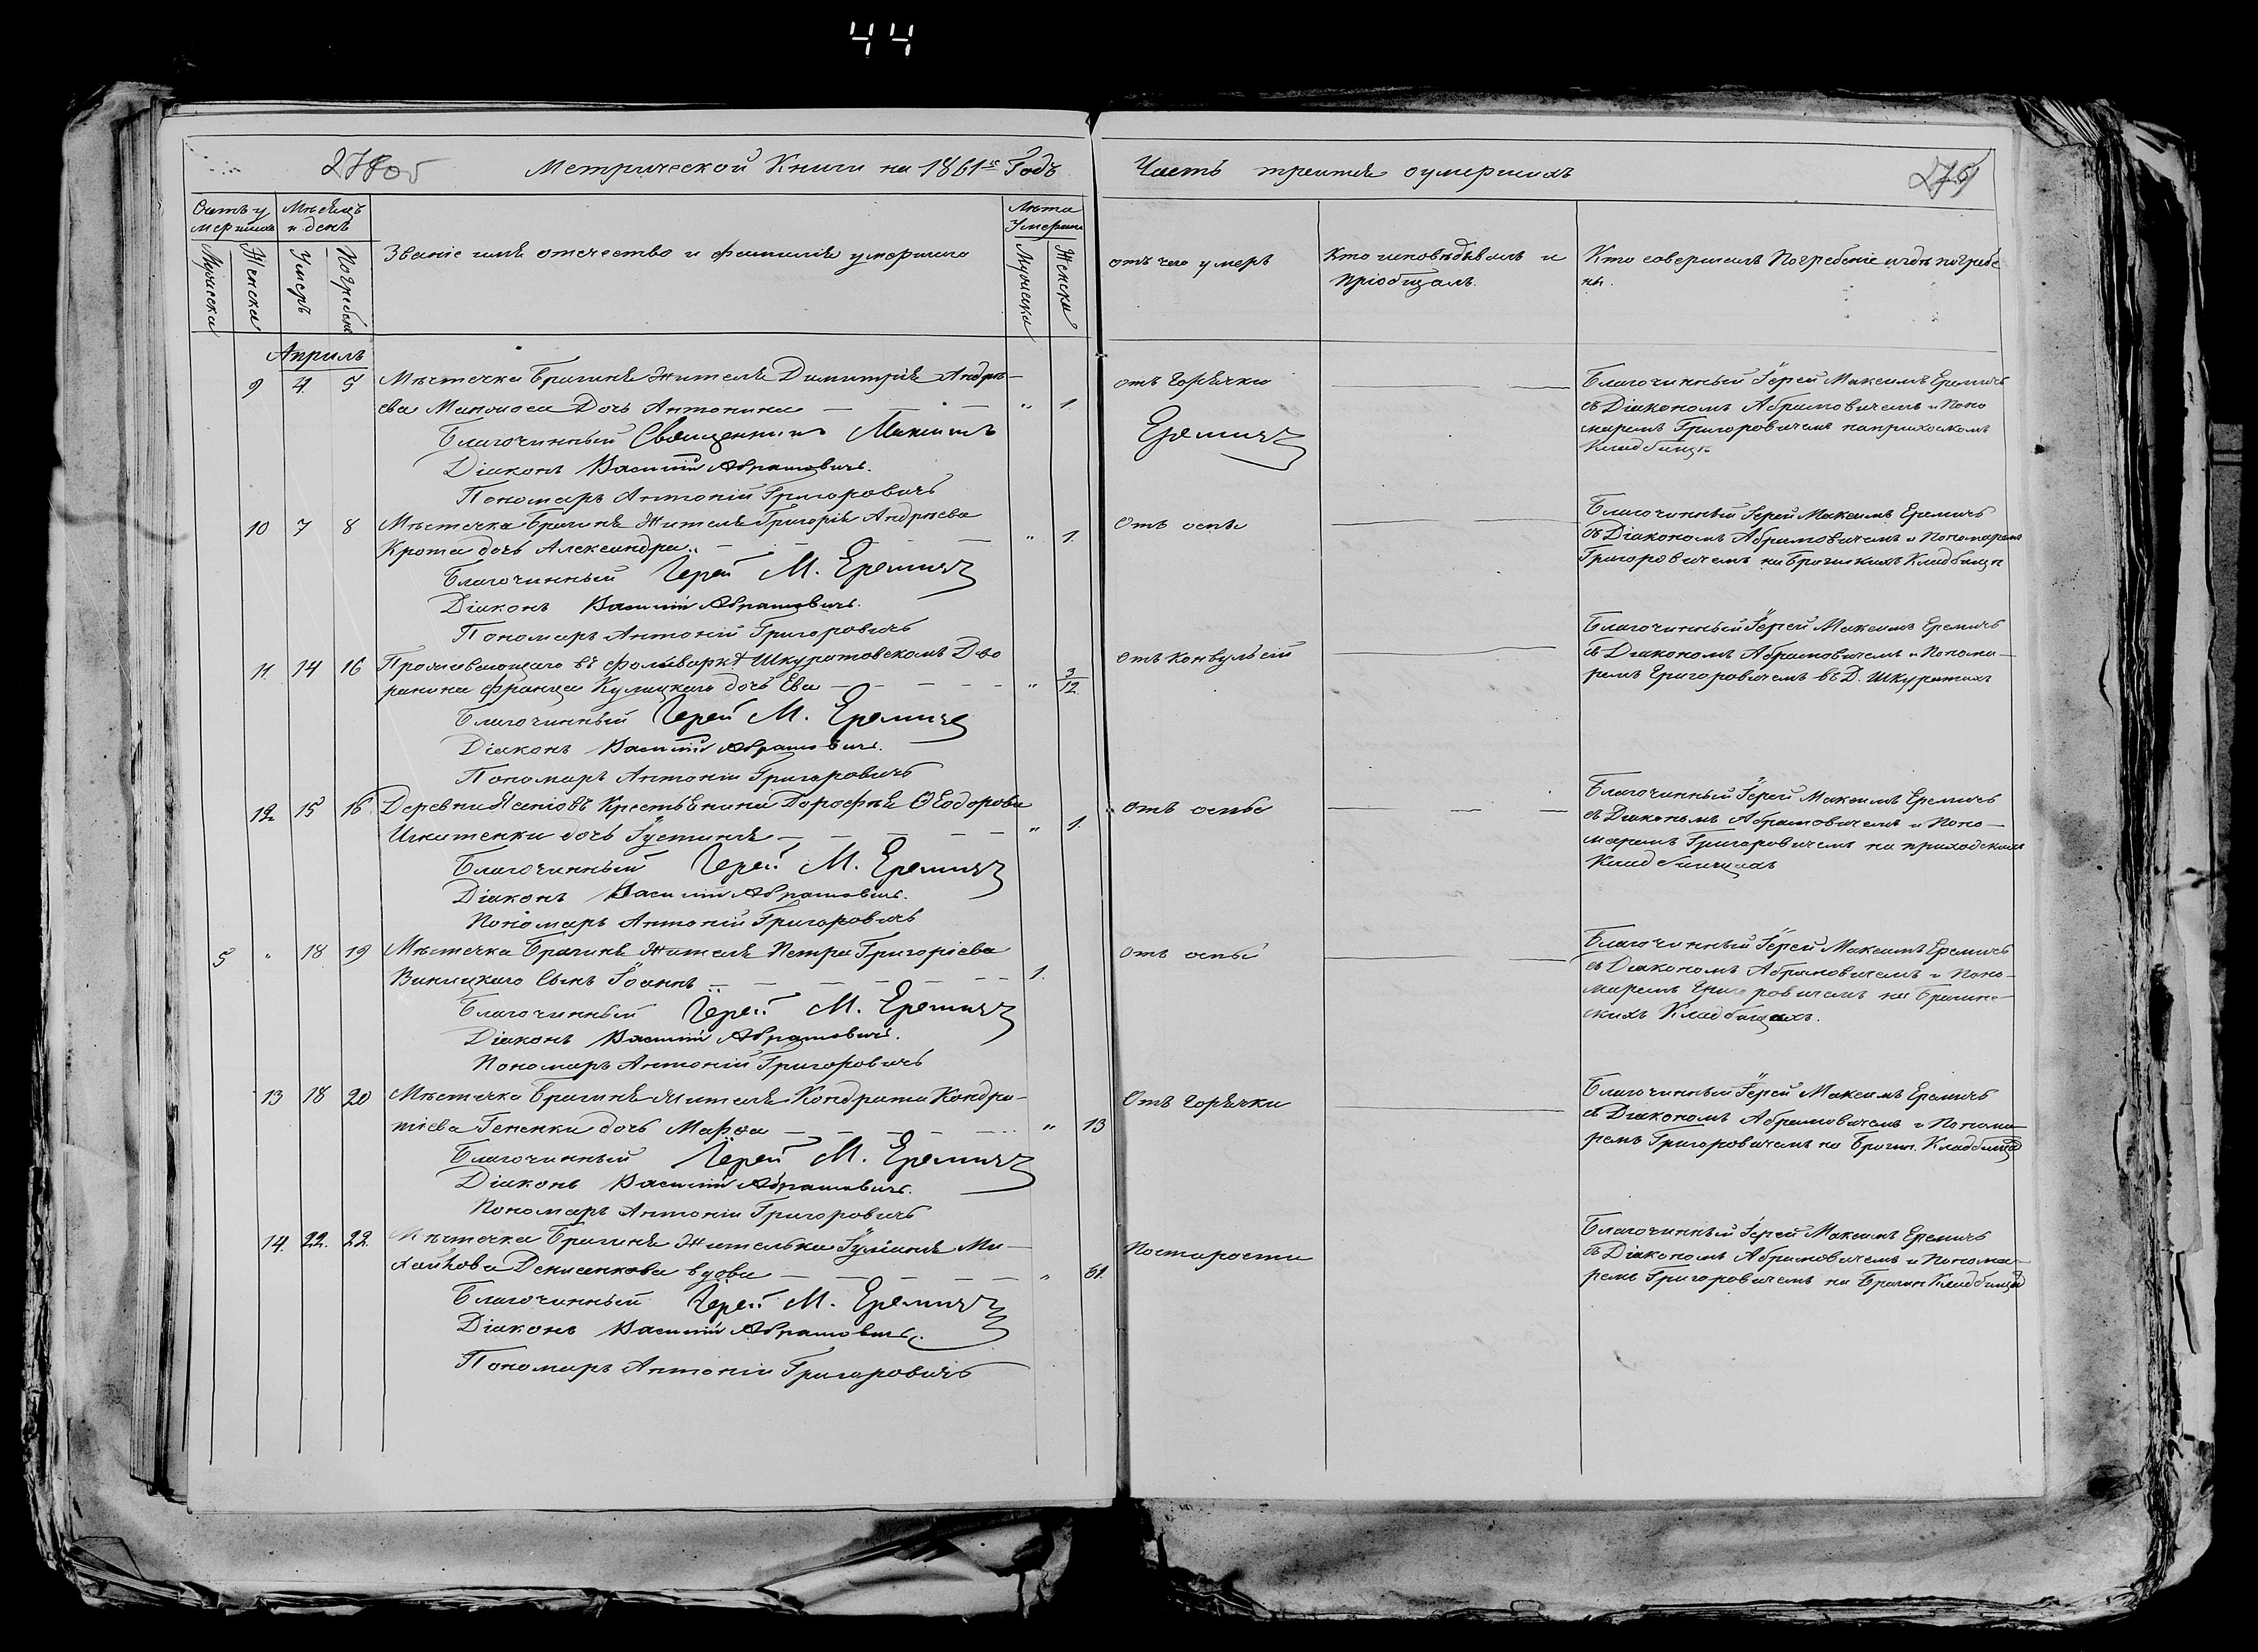 44
Метрической Книги на 1861й Годъ
Часть третія оумершихъ
275
Счетъ у
мершихъ
Мѣсяцъ
и день
Мужеска
Женска
Умеръ
Погребенъ
Званіе имя отечество и фамилія умершаго
Лѣта
Умерши
Мужеска
Женска
отъ чего умеръ
Кто исповѣдывалъ и
пріобщалъ.
Кто совершилъ Погребеніе и гдѣ погребе
ны.
Апрѣль
9 4. 5 Мѣстечка Брагиня Жителя Димитрія Андрѣ-
ева дочь Антонина — — — „ 1.
отъ горячки
Благочинный Іерей Максимъ Еремичъ
съ Діакономъ Абрамовичемъ и Поно
маремъ Григоровичемъ
Кладбищѣ
Благочинный Священникъ Максимъ Еремичъ
Діаконъ Василій Абрамовичъ.
Пономарь Антоній Григоровичъ
10 7 8 Мѣстечка Брагиня Жителя Григорія Андрѣева
Крота дочь Александра „ 1.
Отъ оспы
Благочинный Іерей Максимъ Еремичъ
съ Діакономъ Абрамовичемъ и Пономаремъ
Григоровичемъ на Брагинскихъ Кладбищѣ
Благочинный Іерей М. Еремичъ
Діаконъ Василій Абрамовичъ.
Пономарь Антоній Григоровичъ
11 14 16 Проживающаго въ фольваркѣ Шкуратовскомъ Дво
рянина Франца Кулицкаго дочь Ева — — — „ 3/12.
Отъ конвульсій
Благочинный Іерей Максимъ Еремичъ
съ Діакономъ Абрамовичемъ и Понома-
ремъ Григоровичемъ въ Д. Шкуратахъ
Благочинный Іерей М. Еремичъ
Діаконъ Василій Абрамовичъ.
Пономарь Антоній Григоровичъ
12. 15 16. Деревни Крестьянина Дорофея Ѳеодорова
дочь Іустинія — — — „ 1.
отъ оспы
Благочинный Іерей Максимъ Еремичъ
съ Діакономъ Абрамовичемъ и Поно-
маремъ Григоровичемъ на приходскихъ
Кладбищахъ
Благочинный Іерей М. Еремичъ
Діаконъ Василій Абрамовичъ.
Пономарь Антоній Григоровичъ
5 „ 18 19 Мѣстечка Брагиня Жителя Петра Григоріева
Виницкаго Сынъ Іоаннъ — — — 1.
Отъ оспы
Благочинный Іерей Максимъ Еремичъ
съ Діакономъ Абрамовичемъ и Поно-
маремъ Григоровичемъ на Брагин-
скихъ Кладбищахъ.
Благочинный Іерей М. Еремичъ
Діаконъ Василій Абрамовичъ.
Пономарь Антоній Григоровичъ
13 18 20 Мѣстечка Брагиня Жителя Кондрата Кондра-
тіева Гененки дочь Марфа — — — „ 13
Отъ горячки
Благочинный Іерей Максимъ Еремичъ
съ Діакономъ Абрамовичемъ и Понома
ремъ Григоровичемъ на Брагин. Кладбищѣ
Благочинный Іерей М. Еремичъ
Діаконъ Василій Абрамовичъ.
Пономарь Антоній Григоровичъ
14. 22. 22. Мѣстечка Брагиня Жителька Іуліанія Ми-
хайлова Денисенкова вдова — — — „ 61.
По старости
Благочинный Іерей Максимъ Еремичъ
съ Діакономъ Абрамовичемъ и Понома-
ремъ Григоровичемъ на Брагин Кладбищѣ
Благочинный Іерей М. Еремичъ
Діаконъ Василій Абрамовичъ.
Пономарь Антоній Григоровичъ